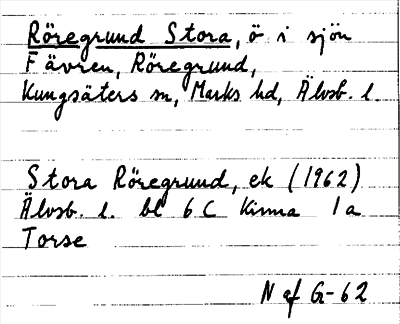 Röregrund Stora, ö i sjön
Fävren, Röregrund,
Kungsäters sn, Marks hd, Älvsb. l.
Stora Röregrund, ek (1962)
Älvsb. l. bl 6 C Kinna 1a
Torse
N af G-62